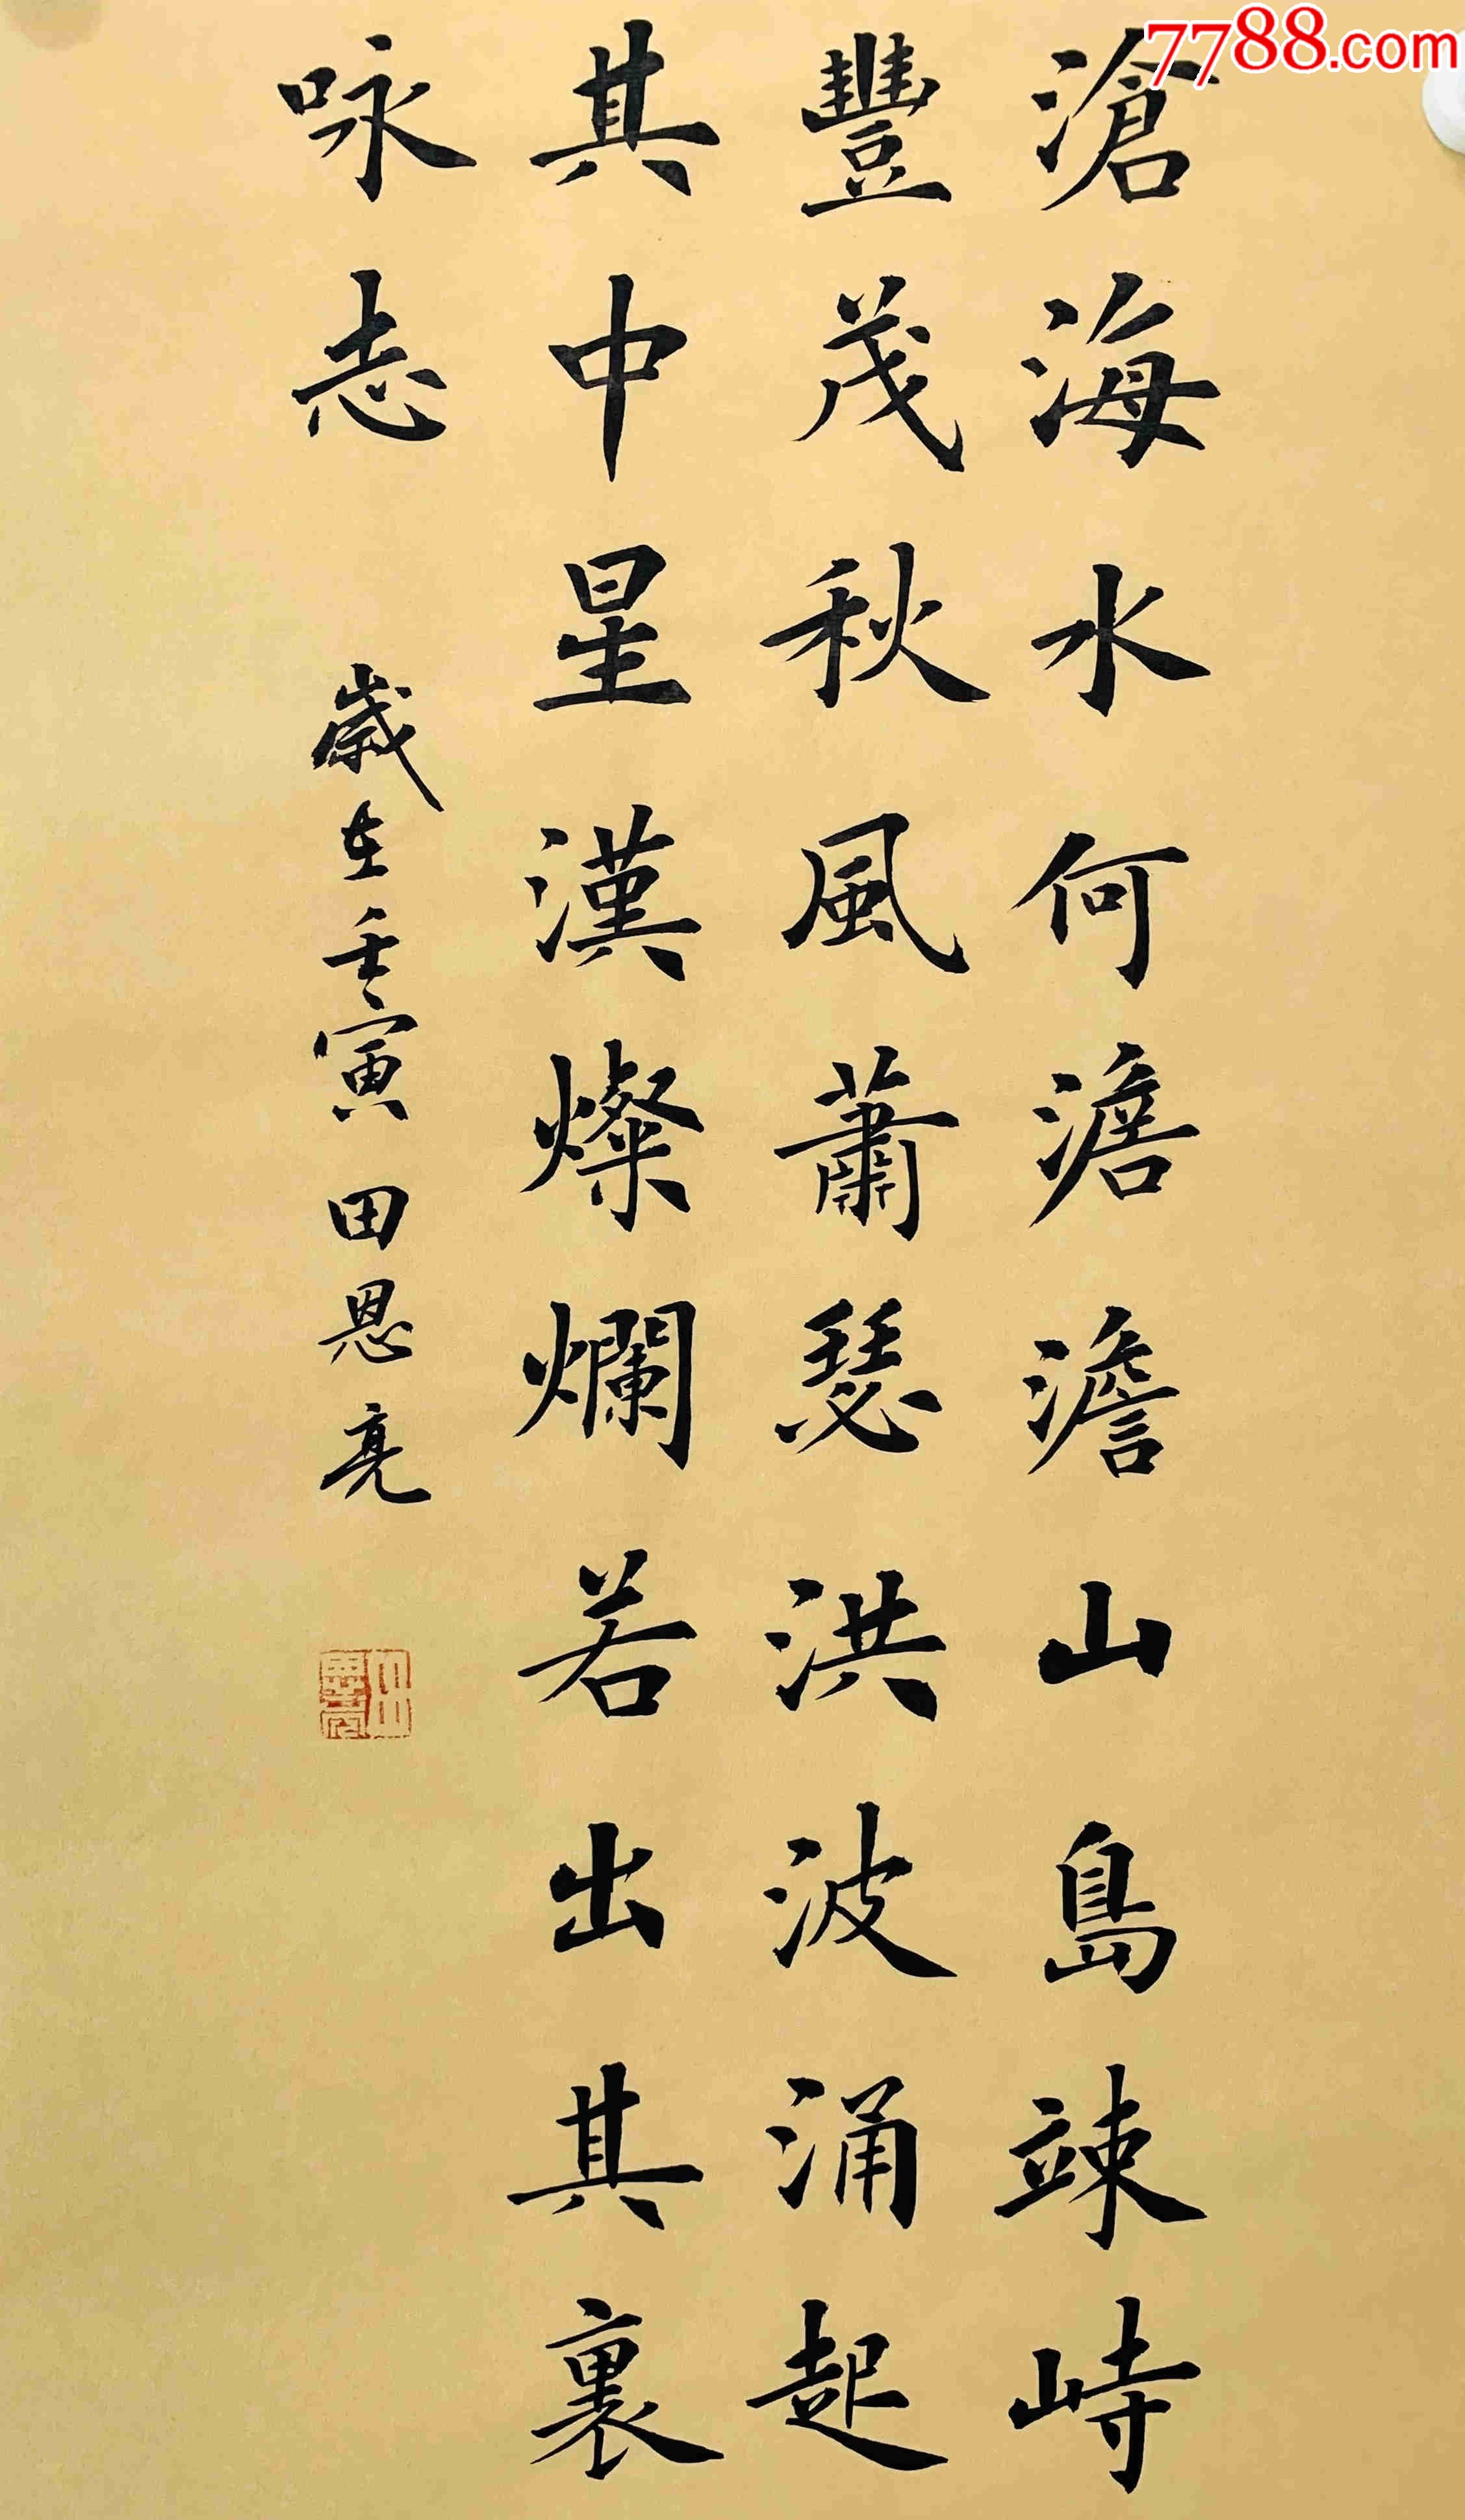 7788.com
滄海水何澹澹山島竦峙
豐茂秋風蕭瑟洪波涌起
其中星漢燦爛若出其裏
咏志 歲在壬寅 田恩亮